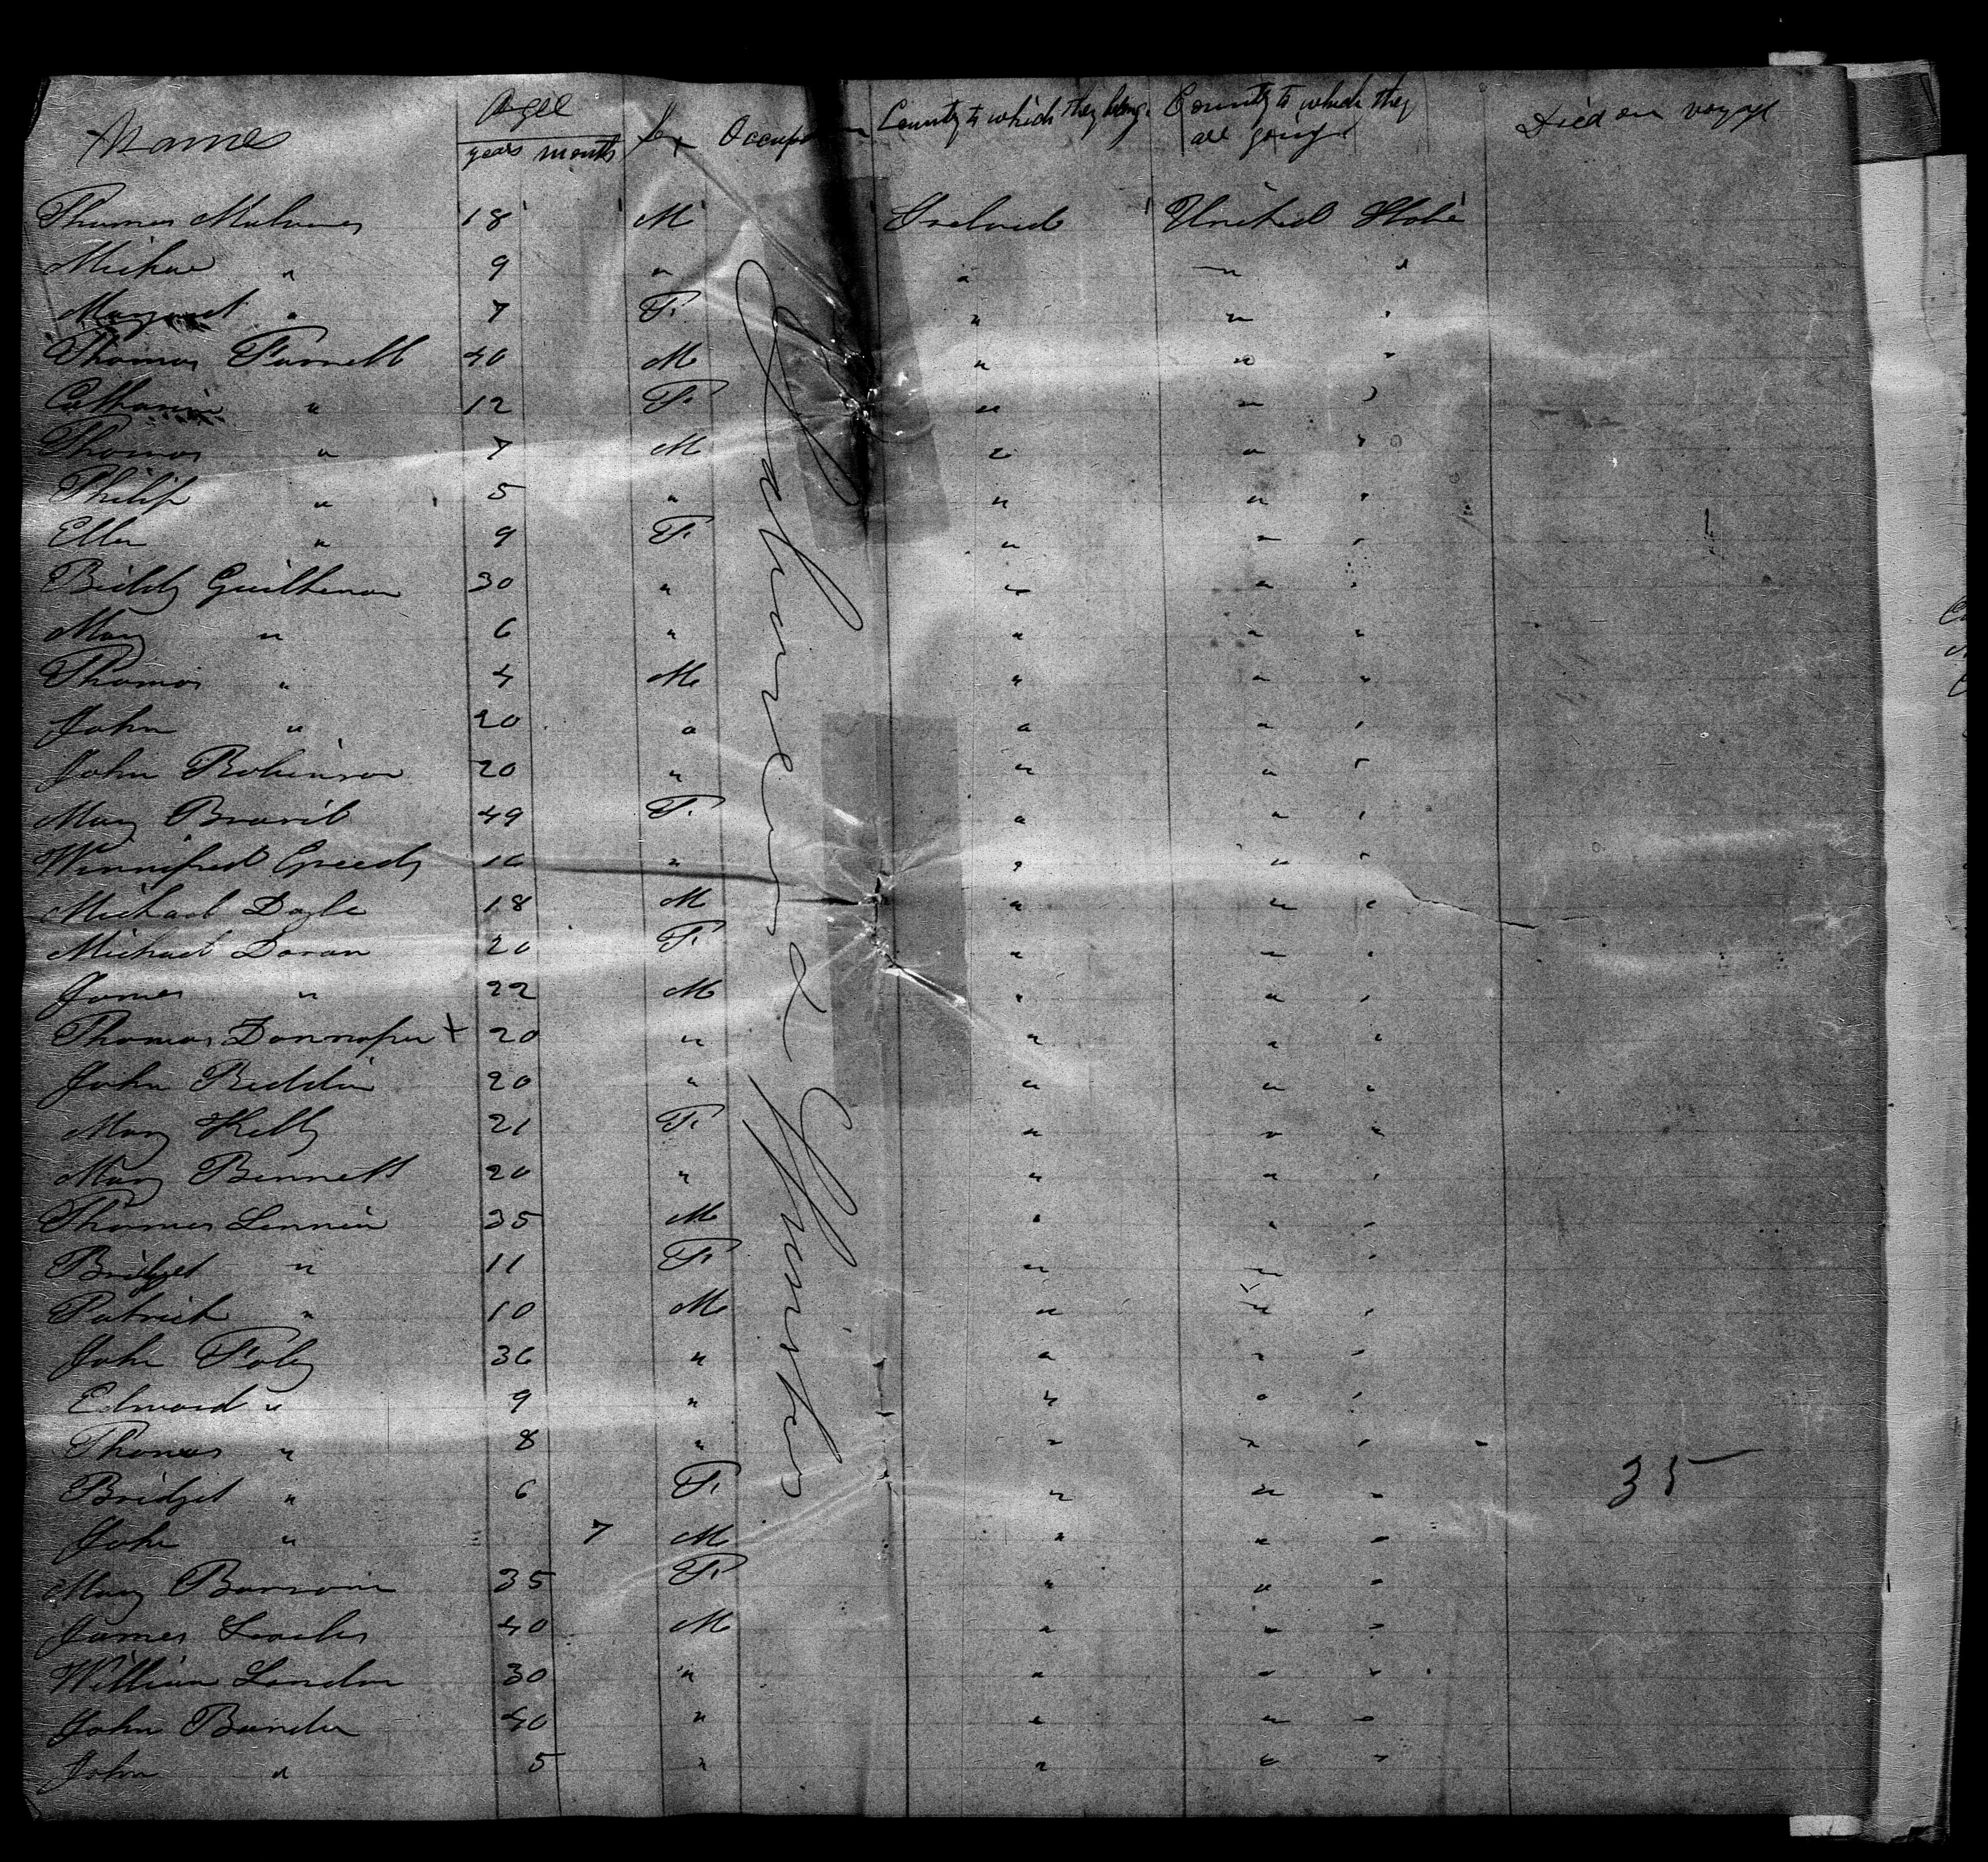 Names Age years months Sex Occupation Country to which they belong Country to which they are going Died on voyage
Thomas 18 M Ireland United State
Michae " 9 " " " "
Margaret " 7 F. " " "
Thomas Farrell 40 M " " "
Catharin " 12 F. " " "
Thomas " 7 M " " "
Philip " 5 " " " "
Ellen " 9 F. " " "
Biddy 30 " " " "
Mary " 6 " " " "
Thomas " 4 M " " "
John " 20 " " " "
John Robinson 20 " " " "
Mary 49 F. " " "
Winnifred 16 " " " "
Michael Doyle 18 M " " "
Michael Doran 20 F. " " "
James " 22 M " " "
Thomas + 20 " " " "
John 20 " " " "
Mary Kelly 21 F. " " "
Mary Bennett 20 " " " "
Thomas Lennin 35 M " " "
Bridget " 11 F. " " "
Patrick " 10 M " " "
John Foley 36 " " " "
Edward " 9 " " " "
Thomas " 8 " " " "
Bridget " 6 F. " " "
John " 7 M " " "
Mary 35 F " " "
James 40 M " " "
William 30 " " " "
John 40 " " " "
John " 5 " " " "
35